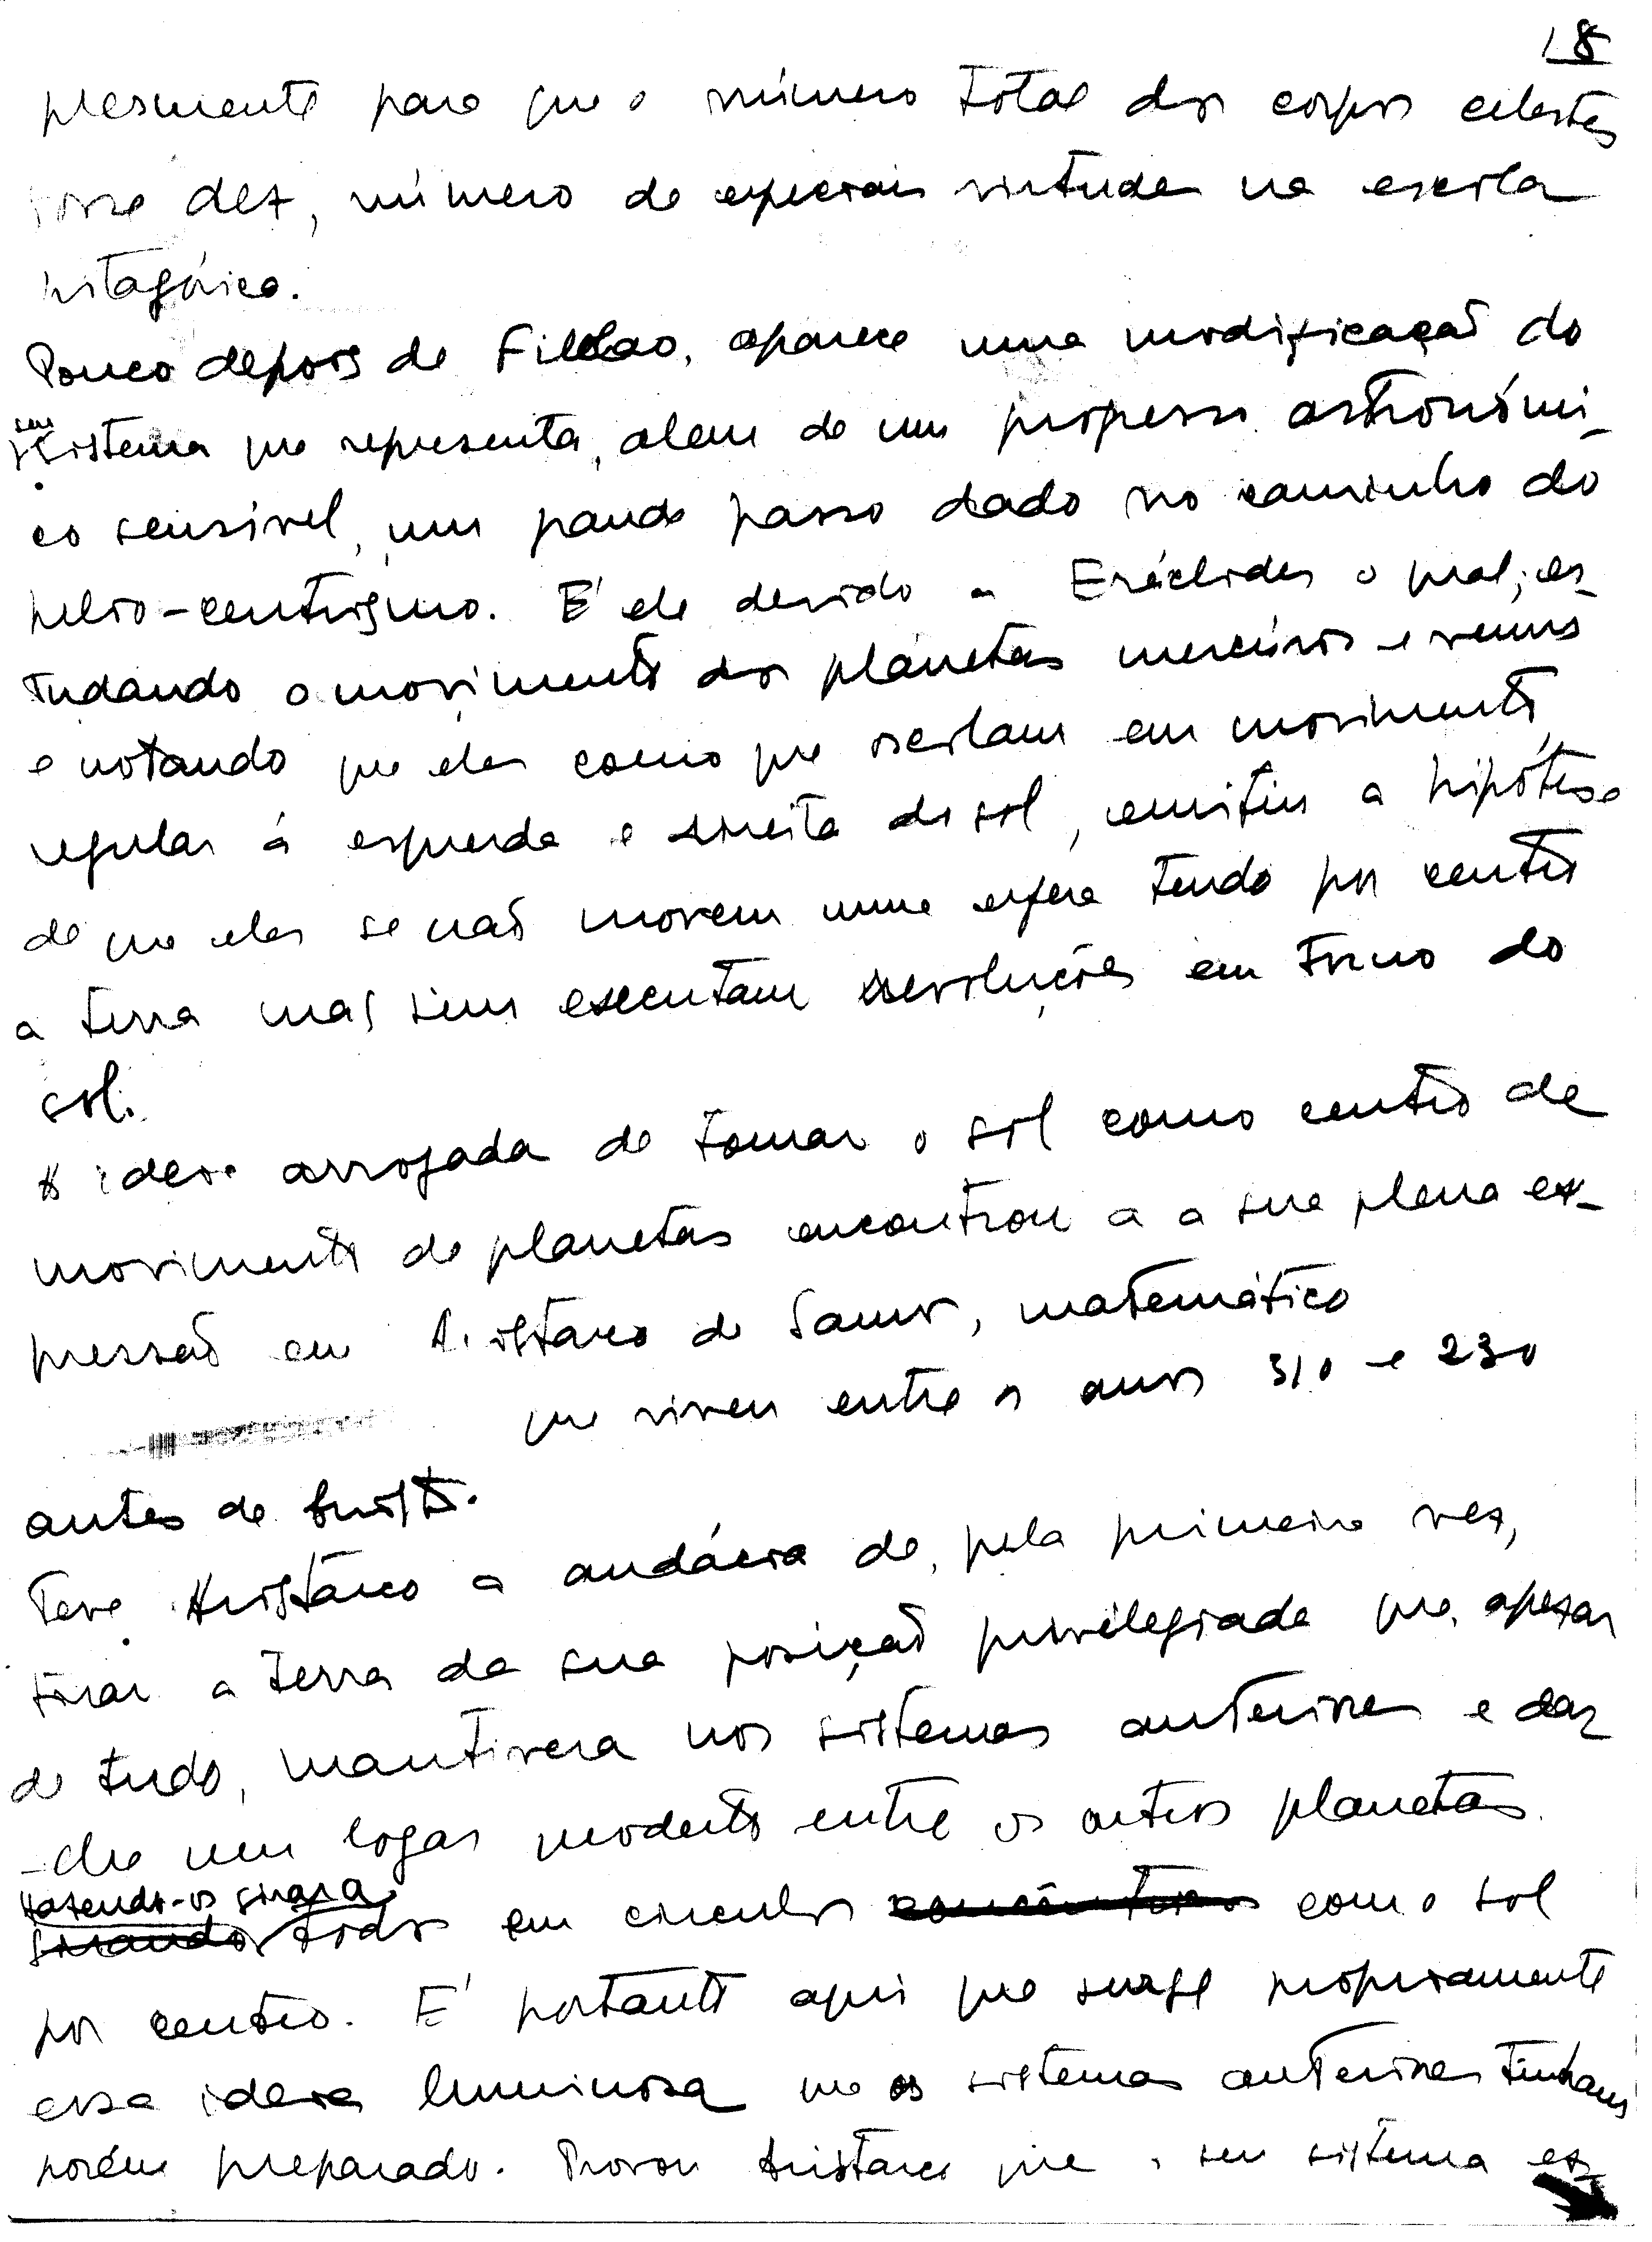 18
plesmente para que o número total dos corpos celestes
fosse dez, número de especiais virtudes na escola
pitagórica.
Pouco depois de Filolao, aparece uma modificação do
seu
sistema que representa, alem de um progresso astronómi-
co sensível, um grande passo dado no caminho do
helio-centrismo. E' ele devido a Eráclides o qual, es-
tudando o movimento dos planetas mercúrio e venus
e notando que eles como que oscilam em movimento
regular á esquerda e direita do sol, emitiu a hipótese
de que eles se não movem numa esfera tendo por centro
a terra mas sim executam revoluções em torno do
sol.
A ideia arrojada de tomar o sol como centro de
movimento de planetas encontrou a a sua plena ex-
pressão em Aristarco de Samos, matemático
que viveu entre os anos 310 e 230
antes de Cristo.
Teve Aristarco a audácia de, pela primeira vez,
tirar a terra da sua posição privilegiada que, apezar
de tudo, mantivera nos sistemas anteriores e dar
-lhe um logar modesto entre os outros planetas
fazendo-os girar a
girando todos em circulos concêntricos com o sol
por centro. E' portanto aqui que surge propriamente
essa ideia luminosa que os sistemas anteriores tinham
porém preparado. Provou Aristarco que o seu sistema ex-